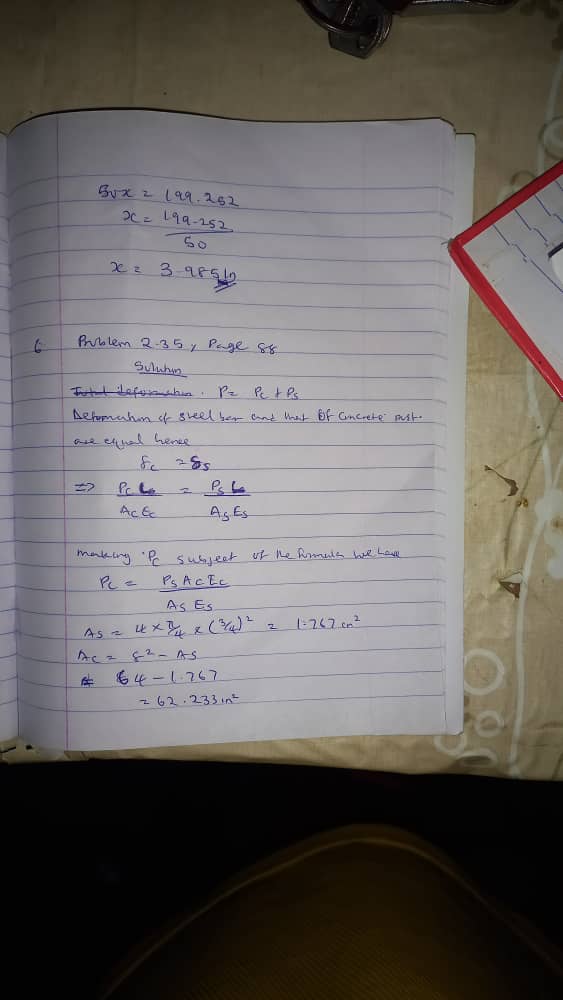 50x = 199.252
x = 199.252
50
x = 3.985in
6 Problem 2.35, Page 88
Solution
Total deformation. P = Pc + Ps
Deformation of steel bar and that of concrete post.
are equal hence
δc = δs
=> PcL = PsL
AcEc AsEs
making Pc subject of the formula we have
Pc = PsAcEc
AsEs
As = 4 × π/4 × (3/4)² = 1.767in²
Ac = 8² - As
64 - 1.767
= 62.233in²